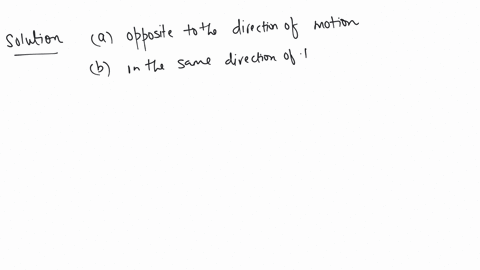 Solution (a) opposite to the direction of motion
(b) in the same direction of